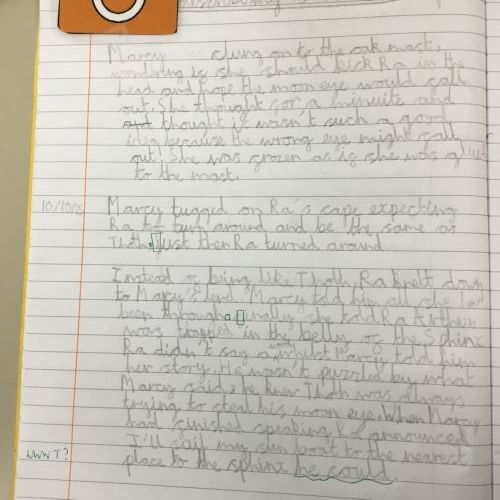 Marcy clung on to the oak mast,
wondering is she should kick Ra in the
head and hope the moon eye would gall
out. She thought gor a minuite and
and thought it wasn't such a good
idea because the wrong eye might gall
out! She was grozen as is she was
to the mast.
10/10/ Marcy tugged on Ra's cape expecting
Ra to turn around and be the same as
Thoth. Just then Ra turned around.
Instead og being like Thoth, Ra knelt down
to Marcy's level. Marcy told him all she had
been through. ginally she told Ra Arthur
was trapped in the belly og the Sphinx
Ra didn't say a whilst Marcy told him
her story. He wasn't puzzled by what
Marcy said, he knew Thoth was always
trying to steal his moon eye. When Marcy
had ginished speaking Ra announced
I'll sail my sun boat to the nearest
WWW T? place to the sphinx he could.